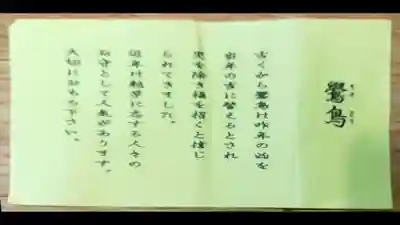 鷽鳥
うそ どり
古くから鷽鳥は昨年の凶を
当年の吉に替えるとされ
災を除き福を招くと信じ
られてきました。
近年は に志する人々の
お守として人気があります。
大切におもち下さい。